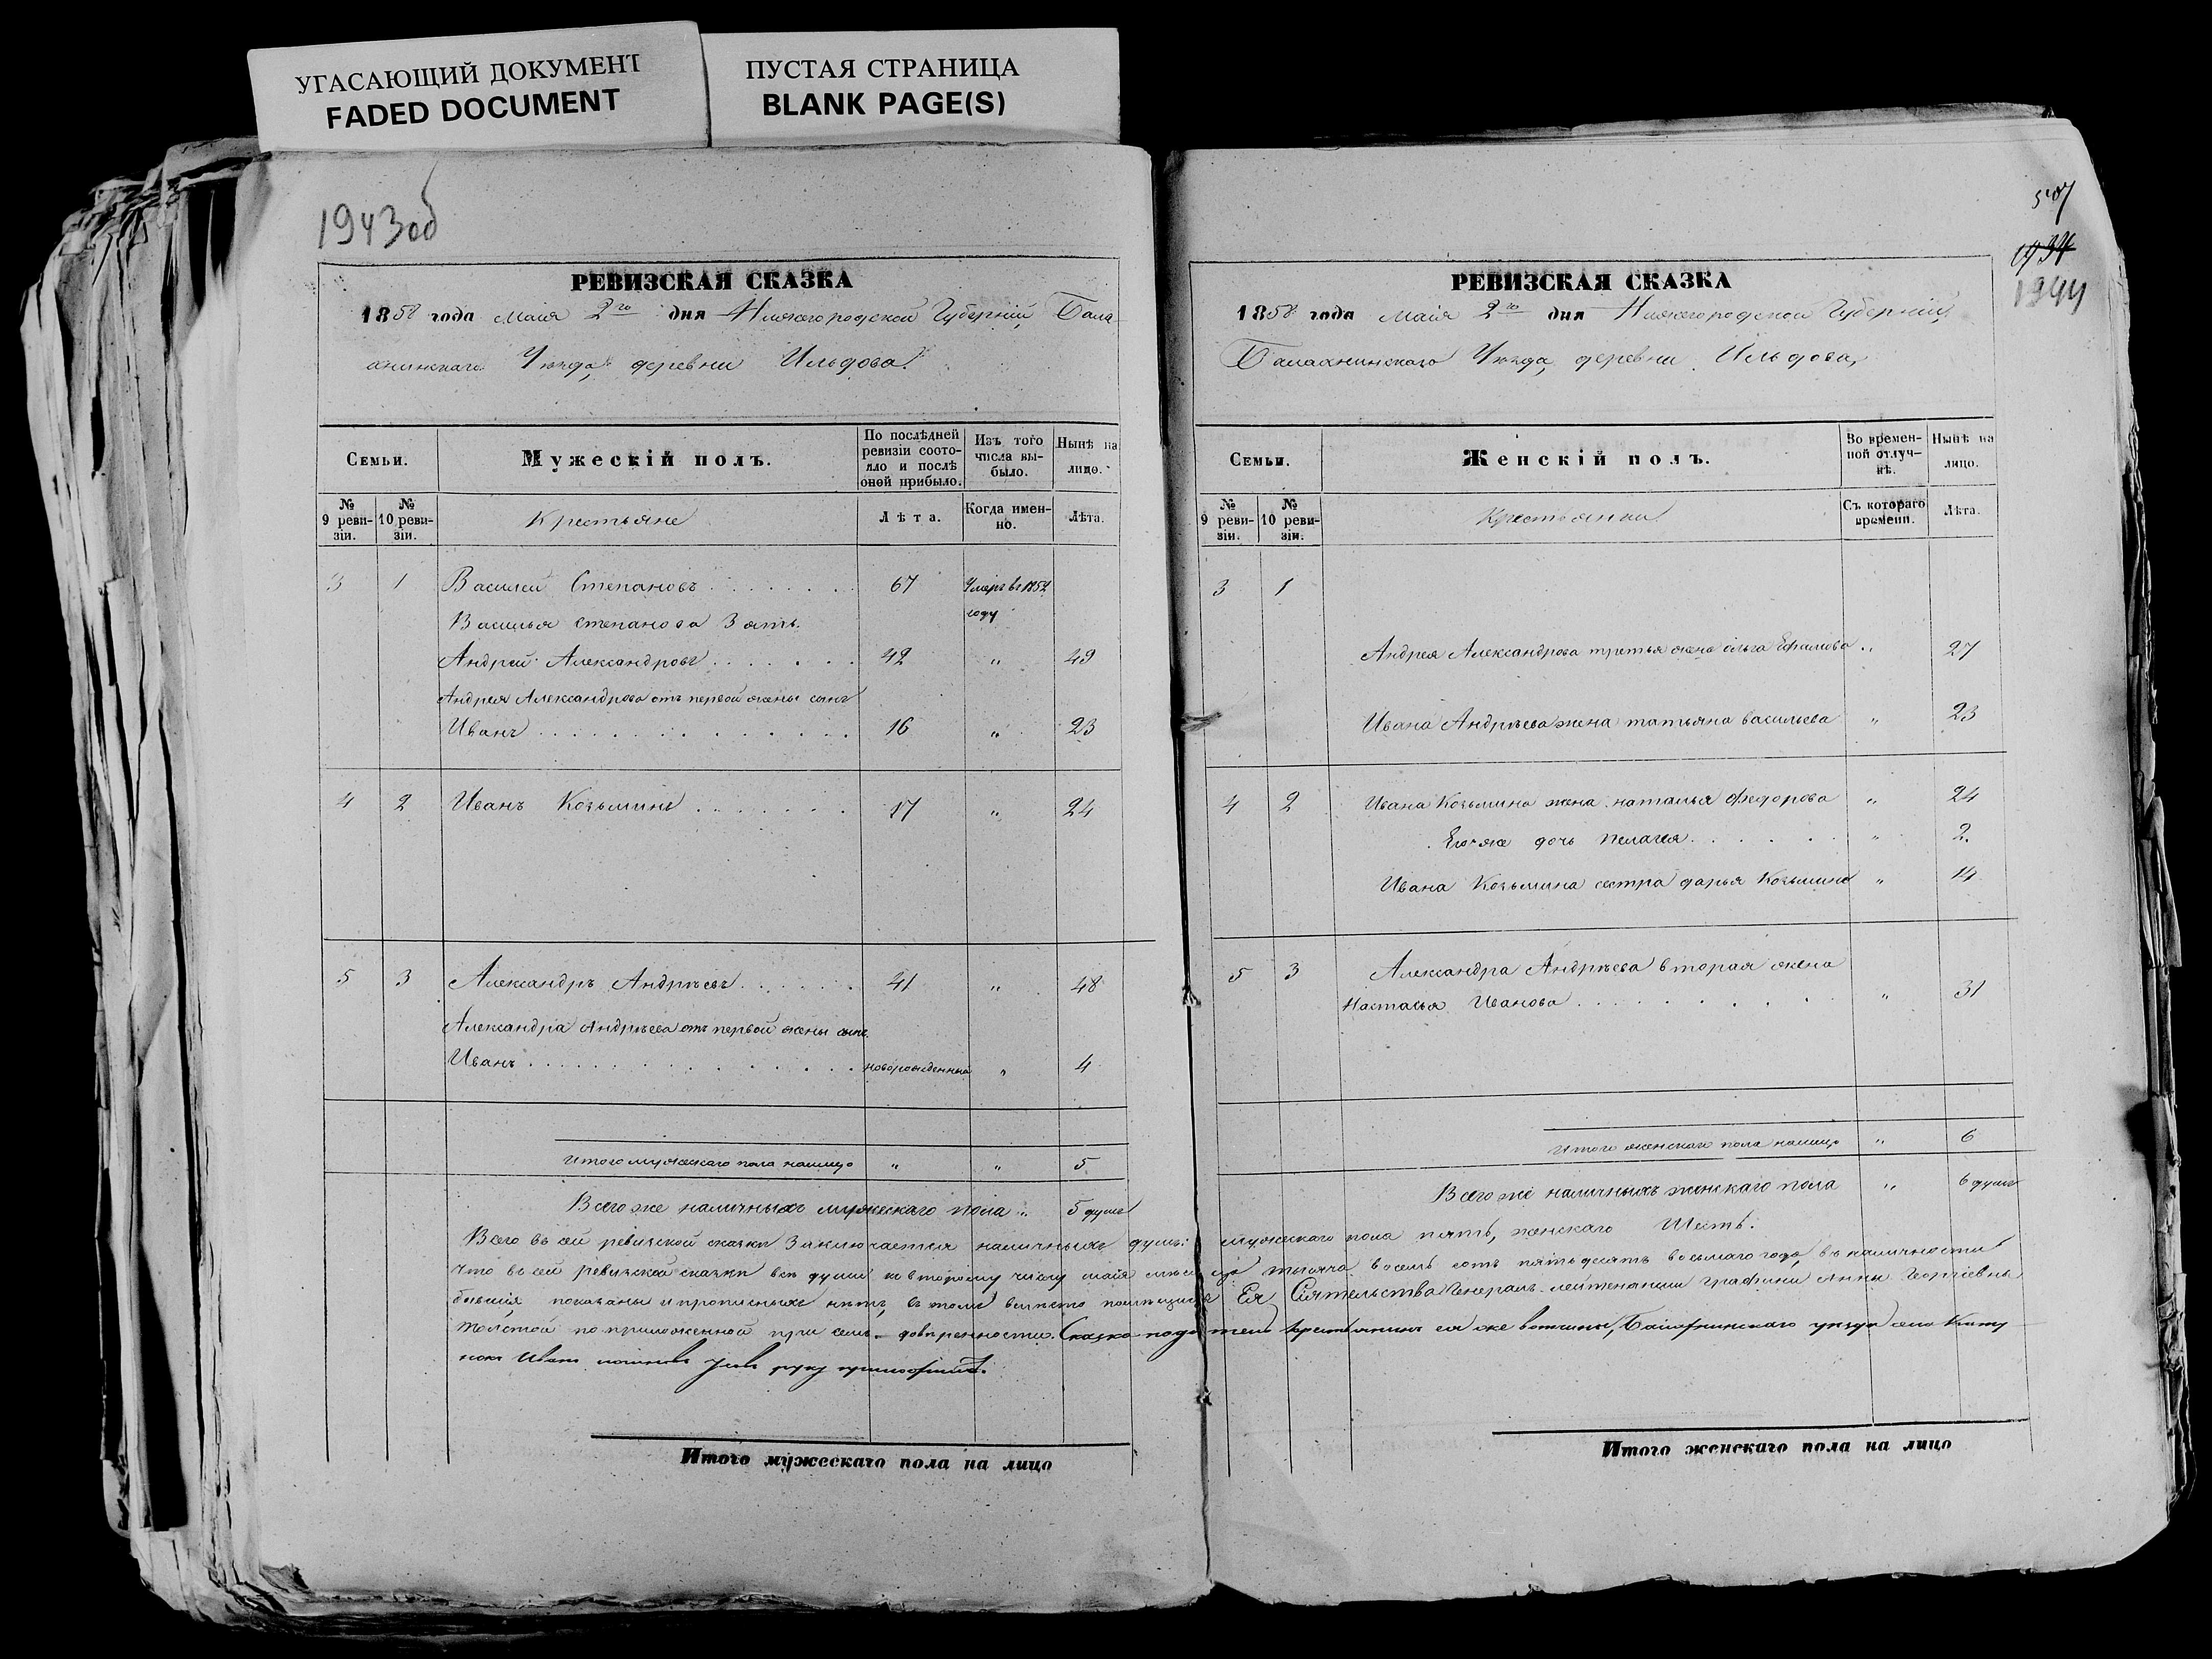 УГАСАЮЩИЙ ДОКУМЕНТ
FADED DOCUMENT
ПУСТАЯ СТРАНИЦА
BLANK PAGE(S)
1943об
РЕВИЗСКАЯ СКАЗКА
1858 года Майя 2го дня Нижегородской Губерніи, Бала
хнинскаго Уѣзда, деревни Ильдова.
Семьи.
Мужескій полъ.
По послѣдней ревизіи состояло и послѣ оной прибыло.
Изъ того числа выбыло.
Нынѣ на лицо.
№ 9 ревизіи.
№ 10 ревизіи.
Крестьяне
Лѣта.
Когда именно.
Лѣта.
3 1 Василей Степановъ 67 Умеръ въ 1852 году
Василья Степанова Зять.
Андрей Александровъ 42 " 49
Андрея Александрова отъ первой жены сынъ
Иванъ 16 " 23
4 2 Иванъ Козьминъ 17 " 24
5 3 Александръ Андрѣевъ 41 " 48
Александра Андрѣева отъ первой жены сынъ
Иванъ новорожденный " 4
Итого мужескаго пола налицо " " 5
Всего же наличныхъ мужескаго пола " 5 душъ
5107
1934
1944
РЕВИЗСКАЯ СКАЗКА
1858 года Майя 2го дня Нижегородской Губерніи,
Балахнинскаго Уѣзда, деревни Ильдова,
Семьи.
Женскій полъ.
Во временной отлучкѣ.
Нынѣ на лицо.
№ 9 ревизіи.
№ 10 ревизіи.
Крестьянки
Съ котораго времени.
Лѣта.
3 1
Андрея Александрова третья жена Ольга Ефимова " 27
Ивана Андрѣева жена татьяна васильева " 23
4 2 Ивана Козьмина жена наталья Федорова " 24
Его же дочь Пелагея " 2.
Ивана Козьмина сестра дарья Козьмина " 14
5 3 Александра Андрѣева вторая жена
Настасья Иванова " 31
Итого женскаго пола налицо " 6
Всего же наличныхъ женскаго пола " 6 душъ
Всего въ сей ревизской сказки Заключается наличныхъ душъ: мужескаго пола пять, женскаго Шесть.
Что въ сей ревизской сказки всѣ души ко второму числу майя мѣсяца тысяча восемь сотъ пятьдесятъ восьмаго года, въ наличности
бывшія показаны и прописныхъ нѣтъ, въ томъ вмѣсто помѣщицы Ея Сіятельства Генералъ-лейтенанши графини Анны Георгіевны
Толстой по приложенной при семъ довѣренности. Сказко-податель крестьянинъ ея же вотчины, Балахнинскаго уѣзда села Кату
нокъ Иванъ руку приложилъ.
Итого мужескаго пола на лицо
Итого женскаго пола на лицо